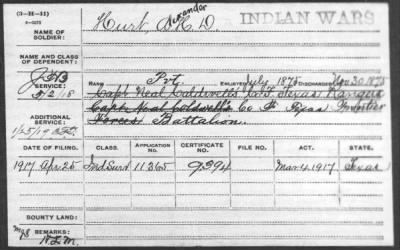 (3-21-11)
3-3273
INDIAN WARS
NAME OF SOLDIER: Hurt, A. D. Alexander
NAME OF DEPENDENT:
RANK Pvt. ENLISTED July 1875 DISCHARGED Nov 30 1875
SERVICE: 5/2/18 Capt Neal Coldwell's Co. F. Texas Rangers
Capt. Neal Coldwell's Co F Texas Frontier
ADDITIONAL SERVICE: Forces Battalion.
DATE OF FILING. CLASS. APPLICATION NO. CERTIFICATE NO. FILE NO. ACT. STATE.
1917 Apr 25 Ind Surv 11365 9394 Mar 4, 1917 Texas
BOUNTY LAND:
REMARKS: N.L.M.